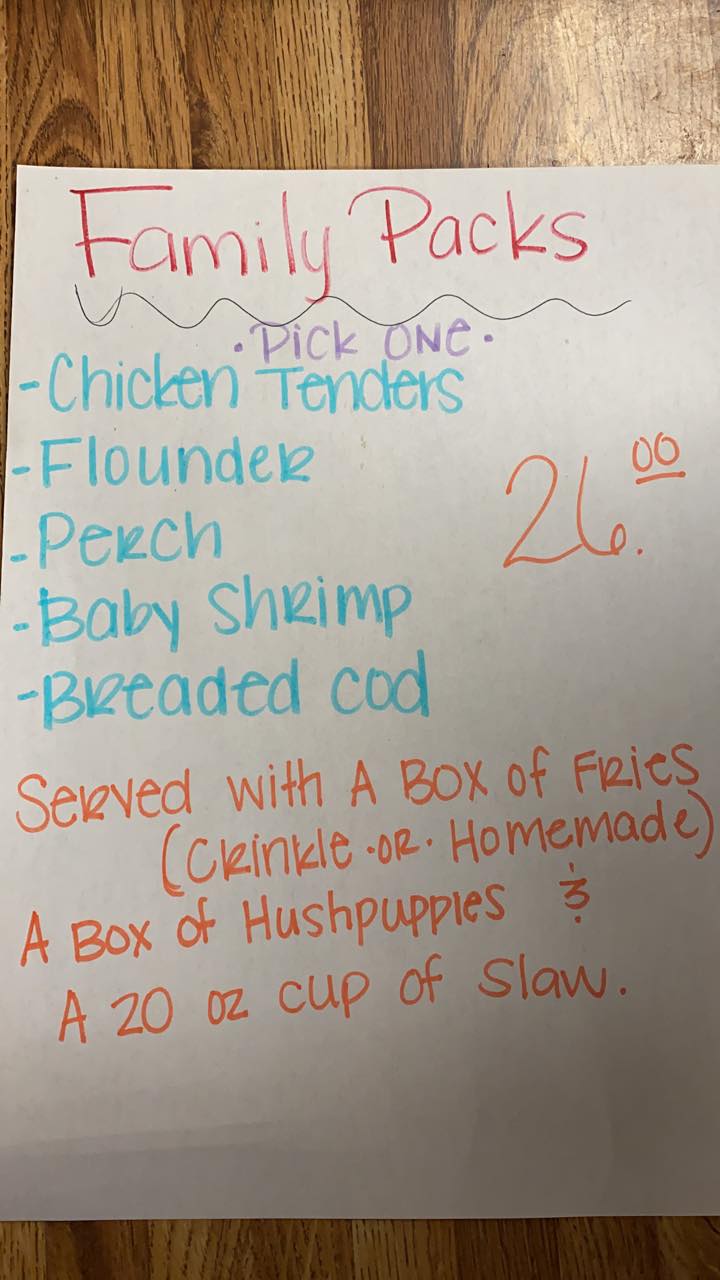 Family Packs
·Pick One·
-Chicken Tenders
-Flounder
-Perch
26.00
-Baby Shrimp
-Breaded Cod
Served with A Box of Fries
(Crinkle ·or· Homemade)
A Box of Hushpuppies &
A 20 oz cup of Slaw.